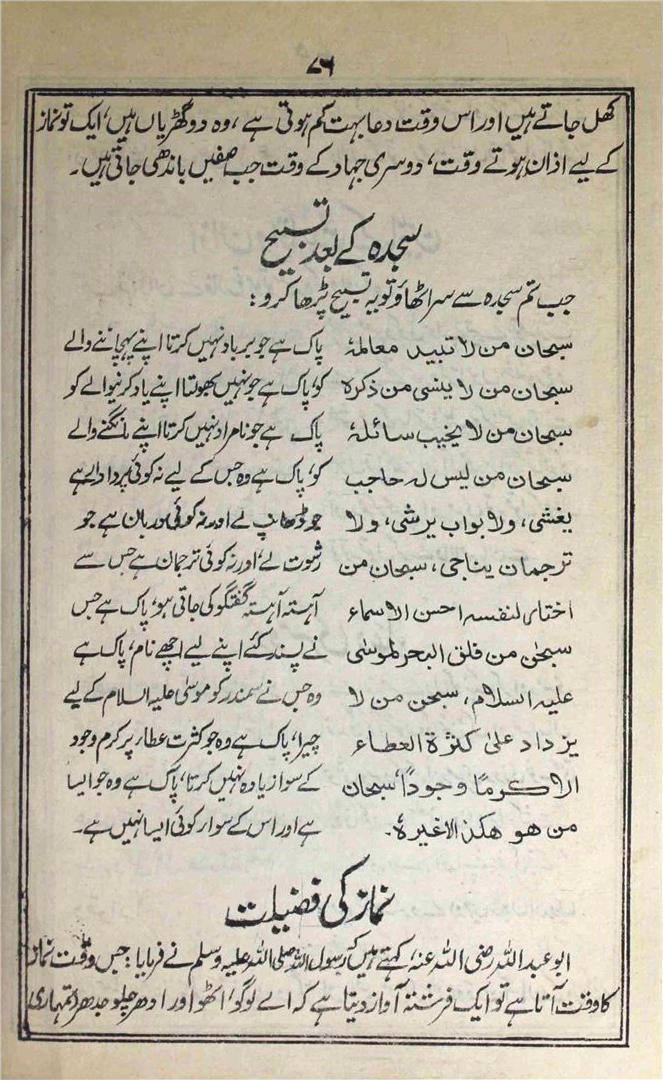 ۷۶
کھل جاتے ہیں اور اس وقت دعا بہت کم ہوتی ہے، وہ دو گھڑیاں ہیں، ایک تو نماز
کے لیے اذان ہوتے وقت، دوسری جہاد کے وقت جب صفیں باندھی جاتی ہیں۔
سجدہ کے بعد تسبیح
جب تم سجدہ سے سر اٹھاؤ تو یہ تسبیح پڑھا کرو:
سبحان من لا تبید معالمہٗ
سبحان من لا ینسی من ذکرہ
سبحان من لا یخیب سائلہٗ
سبحان من لیس لہ حاجب
یغشی، ولا بواب یرشی، ولا
ترجمان یناجی، سبحان من
اختار لنفسہ احسن الاسماء
سبحٰن من فلق البحر لموسٰی
علیہ السلام، سبحٰن من لا
یزداد علیٰ کثرۃ العطاء
الا کرمًا وجودًا سبحان
من ھو ھکذا الا غیرہٗ۔
پاک ہے جو برباد نہیں کرتا اپنے پہچاننے والے
کو، پاک ہے جو نہیں بھولتا اپنے یاد کرنیوالے کو
پاک ہے جو نامراد نہیں کرتا اپنے مانگنے والے
کو، پاک ہے وہ جس کے لیے نہ کوئی پردادار ہے
جو ڈھانپ لے اور نہ کوئی دربان ہے جو
رشوت لے، اور نہ کوئی ترجمان ہے جس سے
آہستہ آہستہ گفتگو کی جاتی ہو، پاک ہے جس
نے پسند کئے اپنے لیے اچھے نام، پاک ہے
وہ جس نے سمندر کو موسیٰ علیہ السلام کے لیے
چیرا، پاک ہے وہ جو کثرت عطار پر کرم وجود
کے سوا زیادہ نہیں کرتا، پاک ہے وہ جو ایسا
ہے اور اس کے سوار کوئی ایسا نہیں ہے۔
نماز کی فضیلت
ابو عبد اللہ رضی اللہ عنہ، کہتے ہیں کہ رسول اللہ صلی اللہ علیہ وسلم نے فرمایا: جس وقت نماز
کا وقت آتا ہے تو ایک فرشتہ آواز دیتا ہے کہ اے لوگو، اٹھو اور ادھر چلو جدھر تمہاری